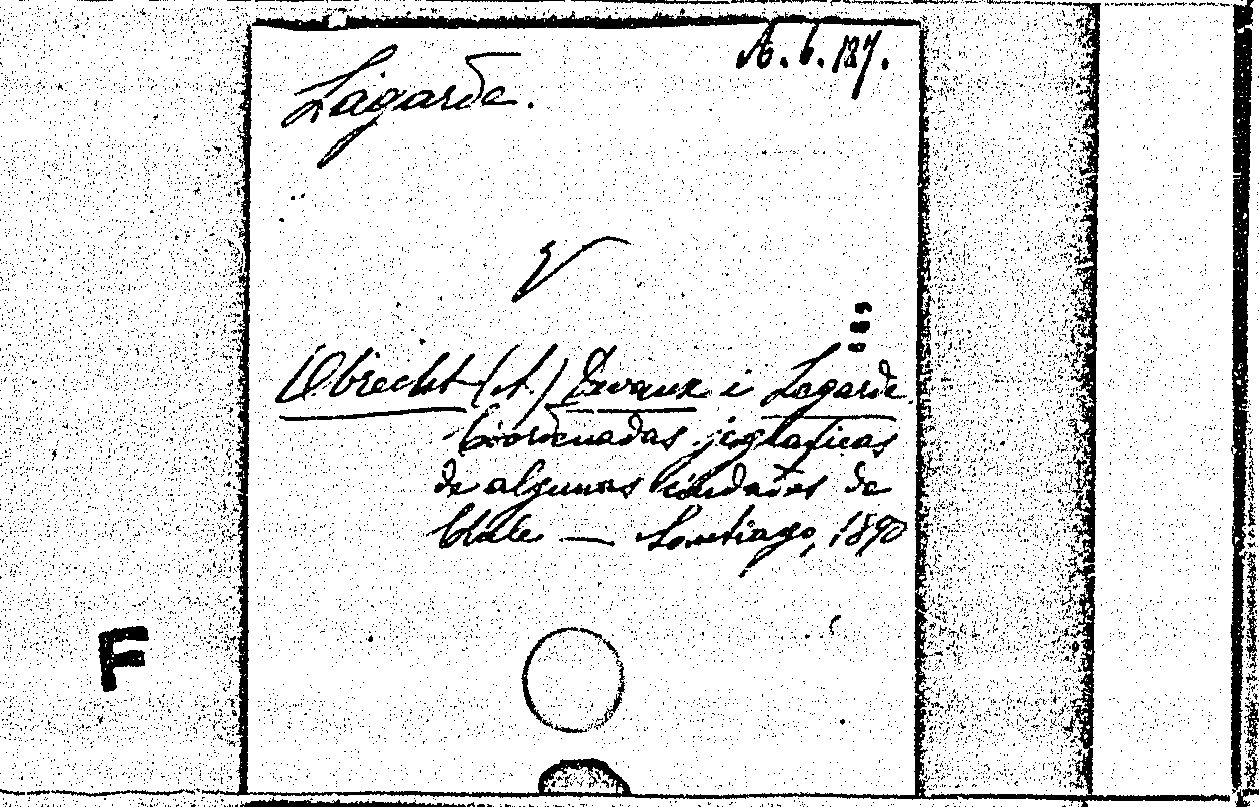 A. b. 187.
Lagarde.
V
Obrecht (A.) Devaux i Lagarde
Coordenadas jeograficas
de algunas ciudades de
Chile — Santiago, 1890
F